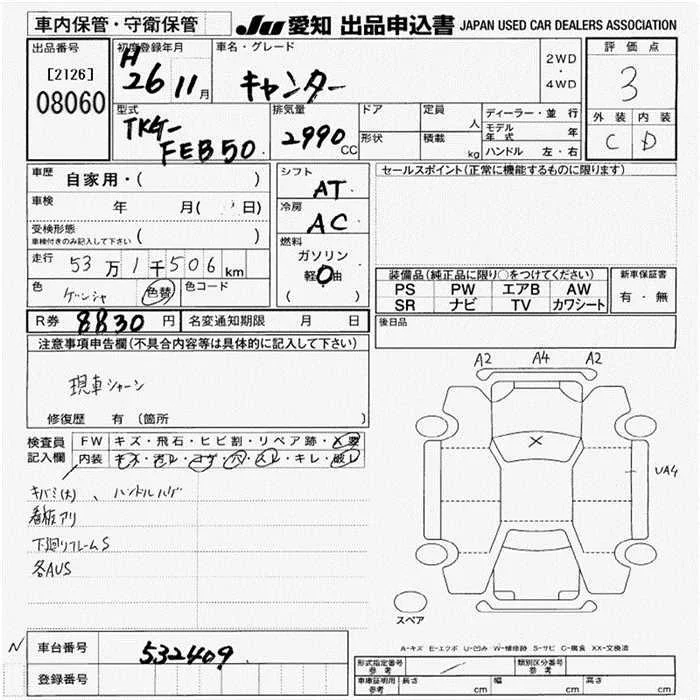 車内保管・守衛保管
JU 愛知 出品申込書 JAPAN USED CAR DEALERS ASSOCIATION
出品番号
[2126]
08060
初度登録年月
H
26 11 月
車名・グレード
キャンター
2WD
・
4WD
評価点
3
外装 内装
C D
型式
TKG-
FEB50.
排気量
2990 CC
ドア
形状
定員 人
積載 kg
ディーラー・並行
モデル年式 年
ハンドル 左・右
車歴 自家用・( )
車検 年 月( 日)
受検形態
車検付きのみ記入して下さい ( )
走行 53万1千506 km
色 色替 色コード
シフト
AT
冷房
AC
燃料
ガソリン
軽油
( )
セールスポイント(正常に機能するものに限ります)
装備品(純正品に限り〇をつけてください)
PS PW エアB AW
SR ナビ TV カワシート
新車保証書
有・無
R券 8830 円 名変通知期限 月 日
後日品
注意事項申告欄(不具合内容等は具体的に記入して下さい)
現車シャーン
修復歴 有 (箇所 )
検査員
記入欄
FW キズ・飛石・ヒビ割・リペア跡・X要
内装 キズ・汚レ・コゲ・穴・スレ・キレ・破レ
キバミ(大)、ハンドルハゲ
看板アリ
下廻リフレームS
各AUS
A2 A4 A2
X
UA4
スペア
A-キズ E-エクボ U-凹み W-補修跡 S-サビ C-腐食 XX-交換済
N
車台番号 532409.
登録番号
形式指定番号
参考
類別区分番号
参考
車庫証明用
参考
長さ cm 幅 cm 高さ cm